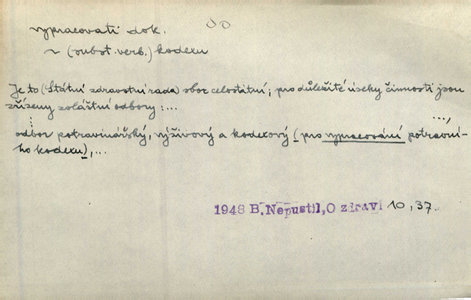 vypracovati dok.
~ (subst. verb.) kodexu
Je to (Státní zdravotní rada) sbor celostátní; pro důležité úseky činnosti jsou
zřízeny zvláštní odbory: ...
...,
odbor potravinářský, výživový a kodexový (pro vypracování potravní-
ho kodexu), ...
1948 B. Nepustil, O zdraví 10, 37.